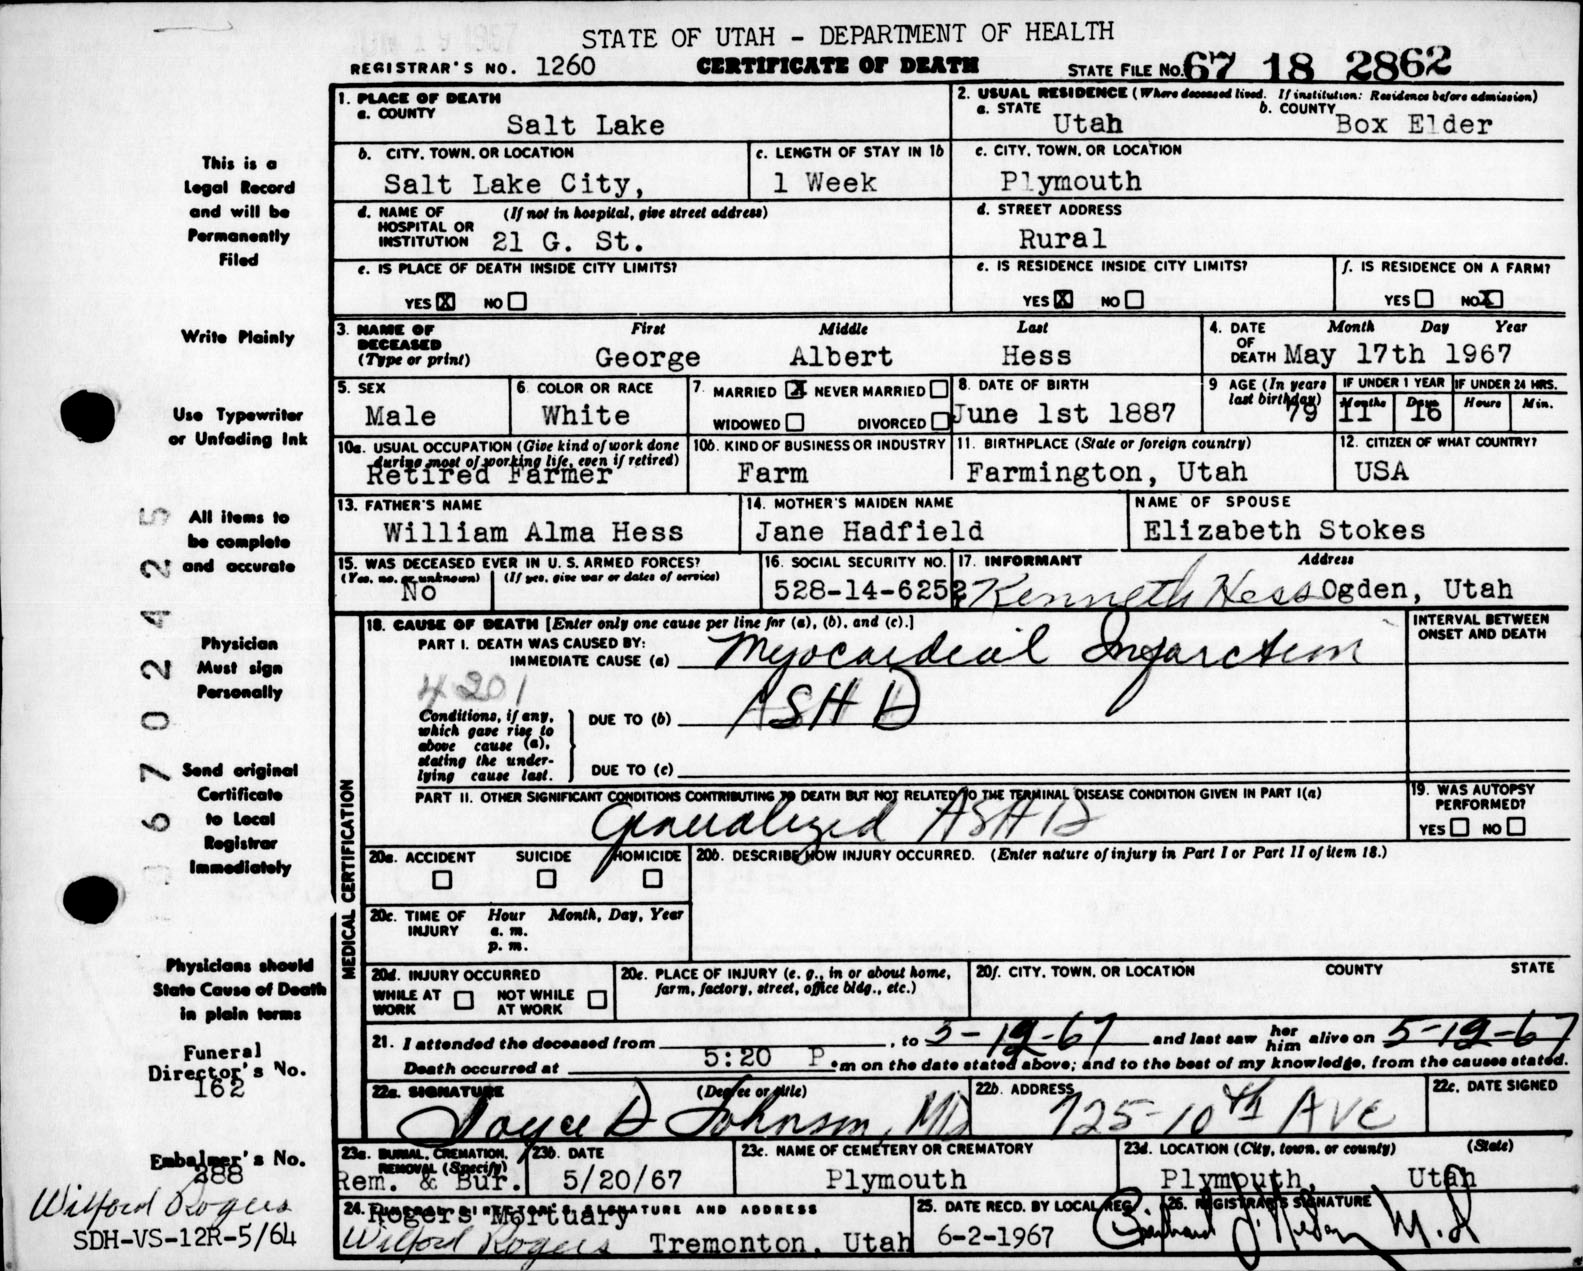 STATE OF UTAH - DEPARTMENT OF HEALTH
REGISTRAR'S NO. 1260 CERTIFICATE OF DEATH STATE FILE NO. 67 18 2862
This is a
Legal Record
and will be
Permanently
Filed
Write Plainly
Use Typewriter
or Unfading Ink
All items to
be complete
and accurate
Physician
Must sign
Personally
Send original
Certificate
to Local
Registrar
Immediately
Physicians should
State Cause of Death
in plain terms
Funeral
Director's No.
162
Embalmer's No.
288
Wilford Rogers
SDH-VS-12R-5/64
67024225
1. PLACE OF DEATH
a. COUNTY
Salt Lake
2. USUAL RESIDENCE (Where deceased lived. If institution: Residence before admission)
a. STATE b. COUNTY
Utah Box Elder
b. CITY, TOWN, OR LOCATION c. LENGTH OF STAY IN 1b c. CITY, TOWN, OR LOCATION
Salt Lake City, 1 Week Plymouth
d. NAME OF (If not in hospital, give street address)
HOSPITAL OR
INSTITUTION 21 G. St.
d. STREET ADDRESS
Rural
e. IS PLACE OF DEATH INSIDE CITY LIMITS? e. IS RESIDENCE INSIDE CITY LIMITS? f. IS RESIDENCE ON A FARM?
YES X NO YES X NO YES NO X
3. NAME OF First Middle Last
DECEASED
(Type or print) George Albert Hess
4. DATE Month Day Year
OF
DEATH May 17th 1967
5. SEX 6. COLOR OR RACE 7. MARRIED X NEVER MARRIED
WIDOWED DIVORCED
Male White
8. DATE OF BIRTH
June 1st 1887
9 AGE (In years
last birthday) 79
IF UNDER 1 YEAR IF UNDER 24 HRS.
Months Days Hours Min.
11 16
10a. USUAL OCCUPATION (Give kind of work done
during most of working life, even if retired)
Retired Farmer
10b. KIND OF BUSINESS OR INDUSTRY
Farm
11. BIRTHPLACE (State or foreign country)
Farmington, Utah
12. CITIZEN OF WHAT COUNTRY?
USA
13. FATHER'S NAME 14. MOTHER'S MAIDEN NAME NAME OF SPOUSE
William Alma Hess Jane Hadfield Elizabeth Stokes
15. WAS DECEASED EVER IN U. S. ARMED FORCES?
(Yes, no, or unknown) (If yes, give war or dates of service)
No
16. SOCIAL SECURITY NO.
528-14-6252
17. INFORMANT Address
Kenneth Hess Ogden, Utah
MEDICAL CERTIFICATION
18. CAUSE OF DEATH [Enter only one cause per line for (a), (b), and (c).]
INTERVAL BETWEEN
ONSET AND DEATH
PART I. DEATH WAS CAUSED BY:
IMMEDIATE CAUSE (a) Myocardial Infarction
4201
Conditions, if any,
which gave rise to
above cause (a),
stating the under-
lying cause last.
DUE TO (b) ASHD
DUE TO (c)
PART II. OTHER SIGNIFICANT CONDITIONS CONTRIBUTING TO DEATH BUT NOT RELATED TO THE TERMINAL DISEASE CONDITION GIVEN IN PART I(a)
Generalized ASHD
19. WAS AUTOPSY
PERFORMED?
YES NO
20a. ACCIDENT SUICIDE HOMICIDE
20b. DESCRIBE HOW INJURY OCCURRED. (Enter nature of injury in Part I or Part II of item 18.)
20c. TIME OF Hour Month, Day, Year
INJURY a. m.
p. m.
20d. INJURY OCCURRED
WHILE AT NOT WHILE
WORK AT WORK
20e. PLACE OF INJURY (e. g., in or about home,
farm, factory, street, office bldg., etc.)
20f. CITY, TOWN, OR LOCATION COUNTY STATE
21. I attended the deceased from , to 5-12-67 and last saw her him alive on 5-12-67
Death occurred at 5:20 P.m on the date stated above; and to the best of my knowledge, from the causes stated.
22a. SIGNATURE (Degree or title) 22b. ADDRESS 22c. DATE SIGNED
Joyce D Johnson, MD 725-10th Ave
23a. BURIAL, CREMATION,
REMOVAL (Specify)
Rem. & Bur.
23b. DATE
5/20/67
23c. NAME OF CEMETERY OR CREMATORY
Plymouth
23d. LOCATION (City, town, or county) (State)
Plymouth, Utah
24. FUNERAL DIRECTOR'S SIGNATURE AND ADDRESS
Rogers Mortuary
Wilford Rogers Tremonton, Utah
25. DATE RECD. BY LOCAL REG.
6-2-1967
26. REGISTRAR'S SIGNATURE
M.D.